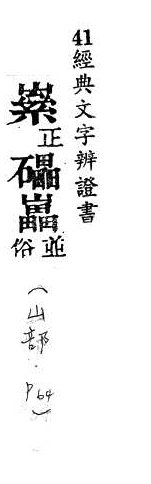 41經典文字辨證書
正
礧
㠥
並俗
(山部．P64)